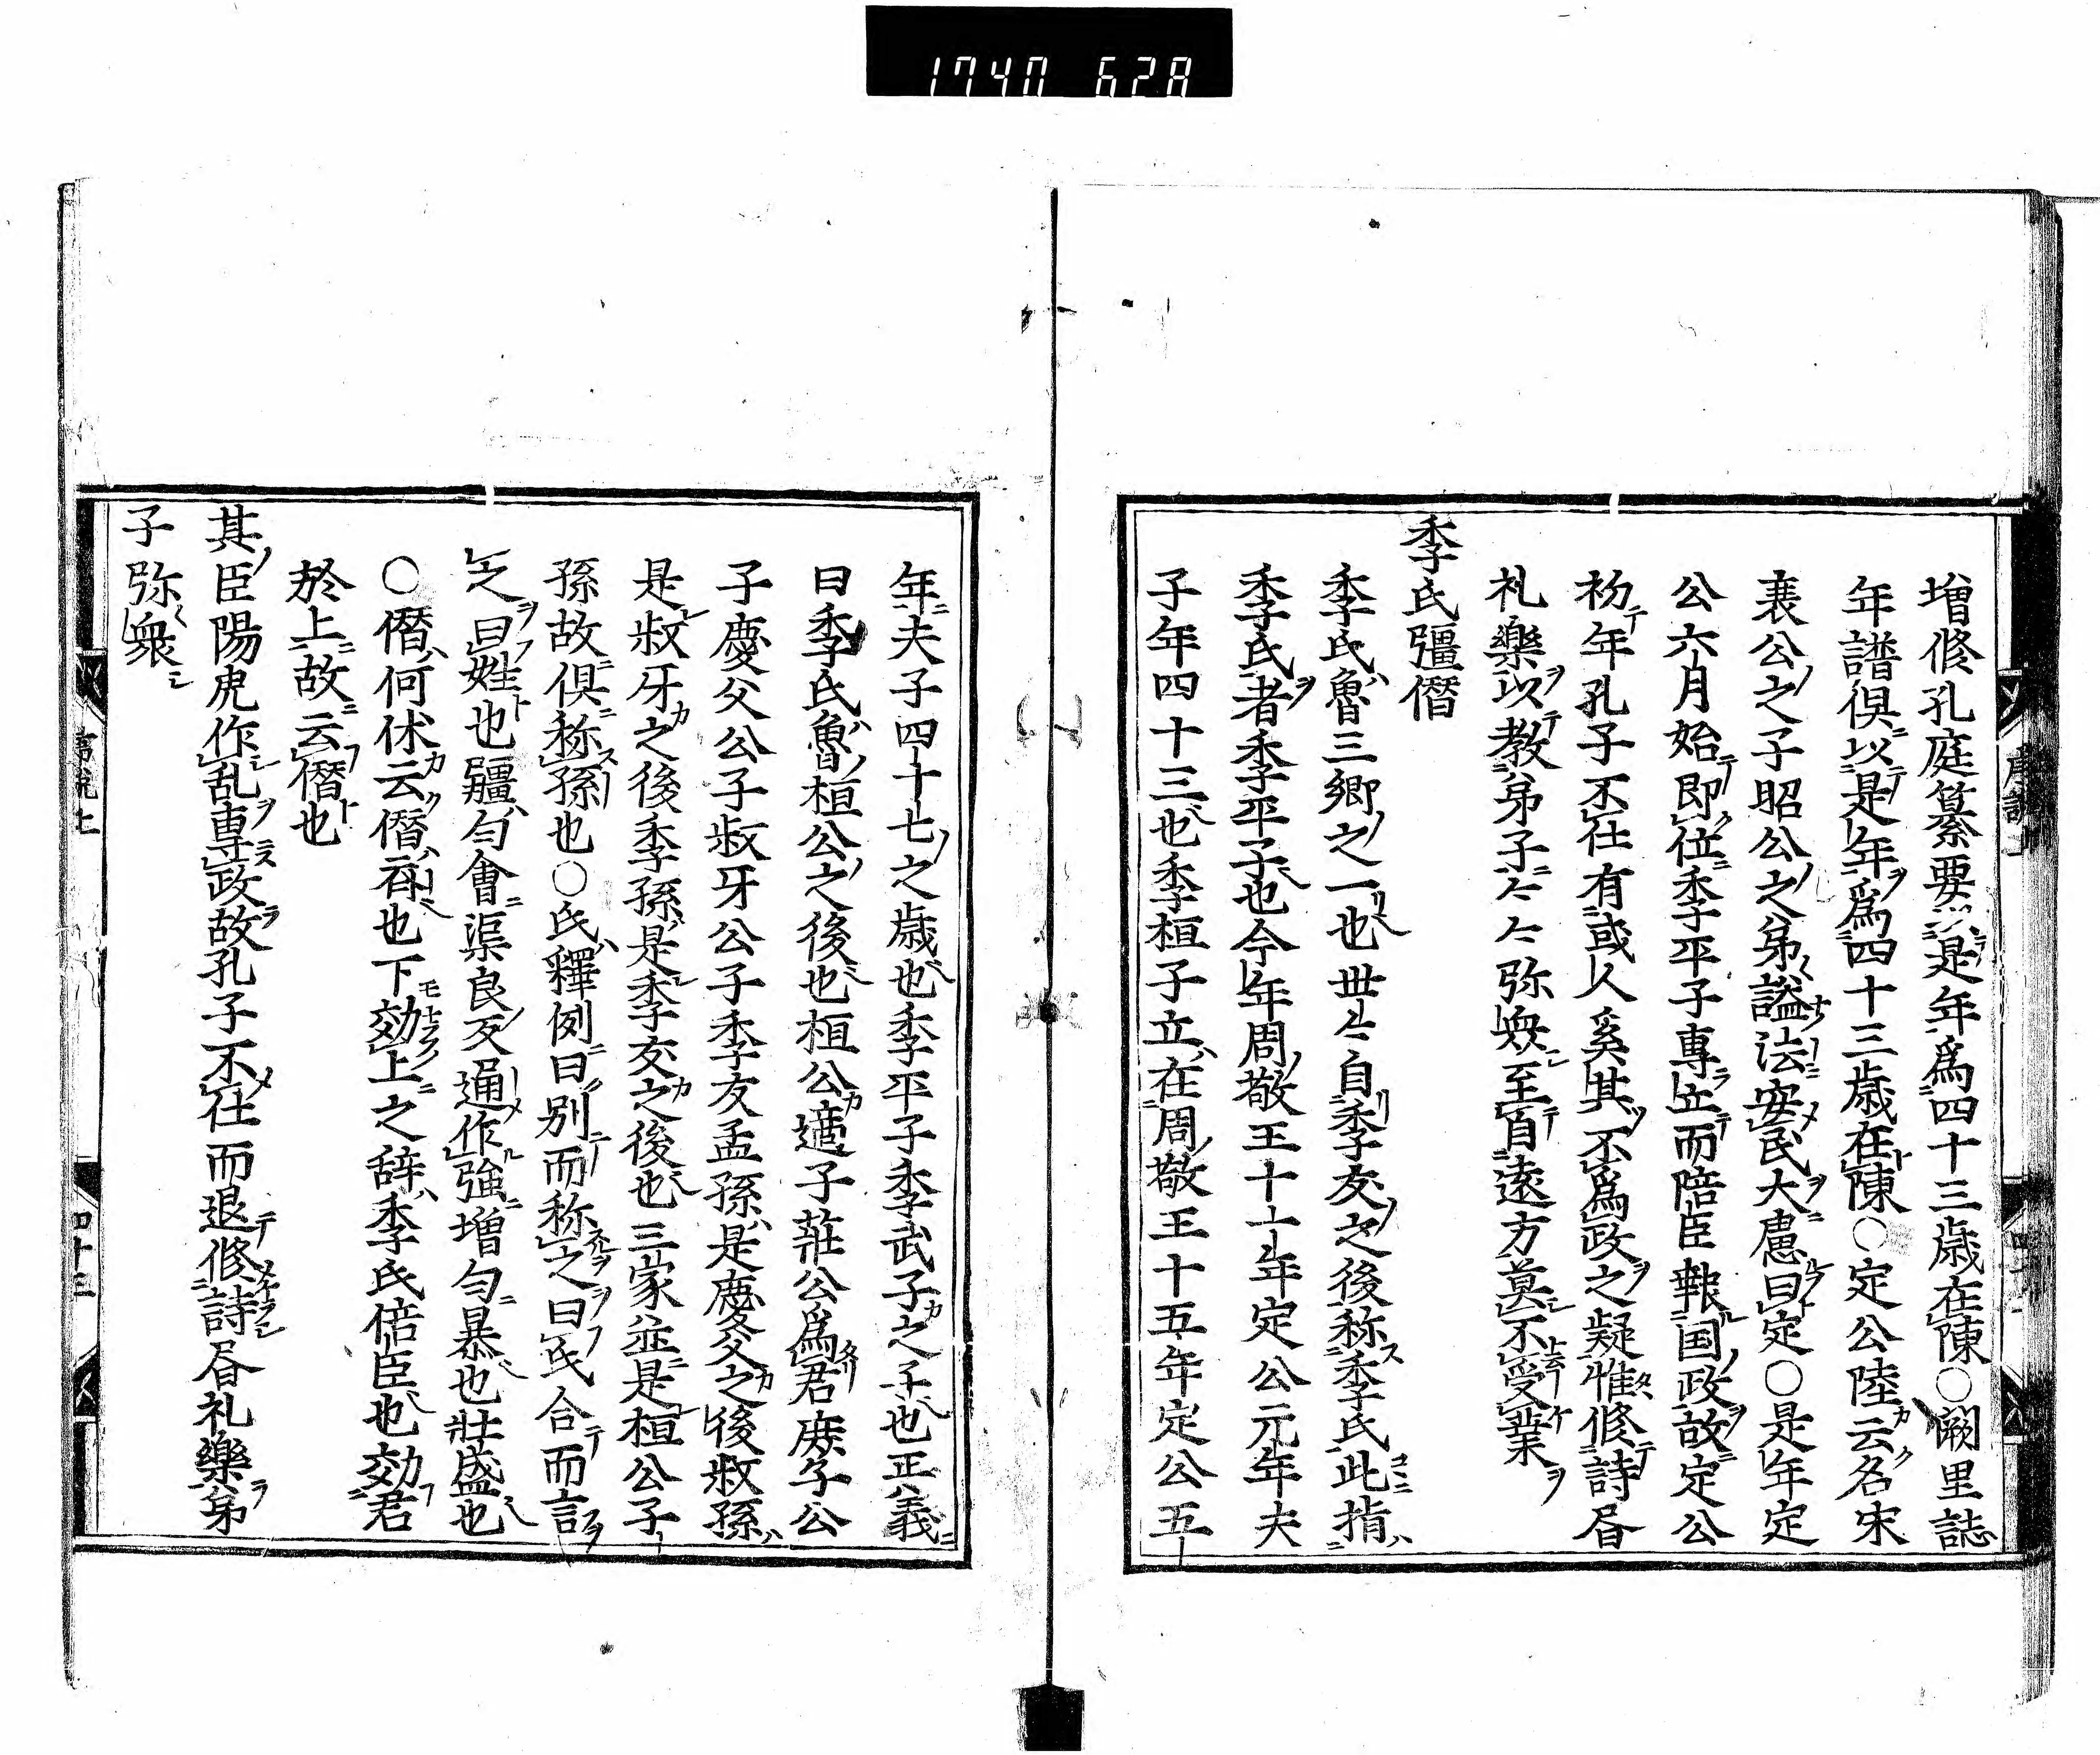 1740 628
増修孔庭纂要以是年為四十三歳在陳○闕里誌
年譜倶以是年為四十三歳在陳○定公陸云名宋
襄公之子昭公之弟諡法安民大慮曰定○是年定
公六月始即位季平子專立而陪臣報国政故定公
初年孔子不仕有或人奚其不為政之疑惟修詩昏
礼樂以教弟子〻〻弥衆至自遠方莫不受業
季氏彊僭
季氏魯三卿之一也世〻自季友之後称季氏此指
季氏者季平子也今年周敬王十一年定公元年夫
子年四十三也季桓子立在周敬王十五年定公五
年夫子四十七之歳也季平子季武子之子也正義
曰季氏魯桓公之後也桓公適子莊公為君庶子公
子慶父公子叔牙公子季友孟孫是慶父之後叔孫
是叔牙之後季孫是季友之後也三家並是桓公子
孫故倶称孫也○氏釋例曰別而称之曰氏合而言
之曰姓也彊匀會渠良反通作強増匀暴也壯盛也
○僭何休云僭齊也下効上之辞季氏倍臣也効君
於上故云僭也
其臣陽虎作乱專政故孔子不仕而退修詩昏礼樂弟
子弥衆